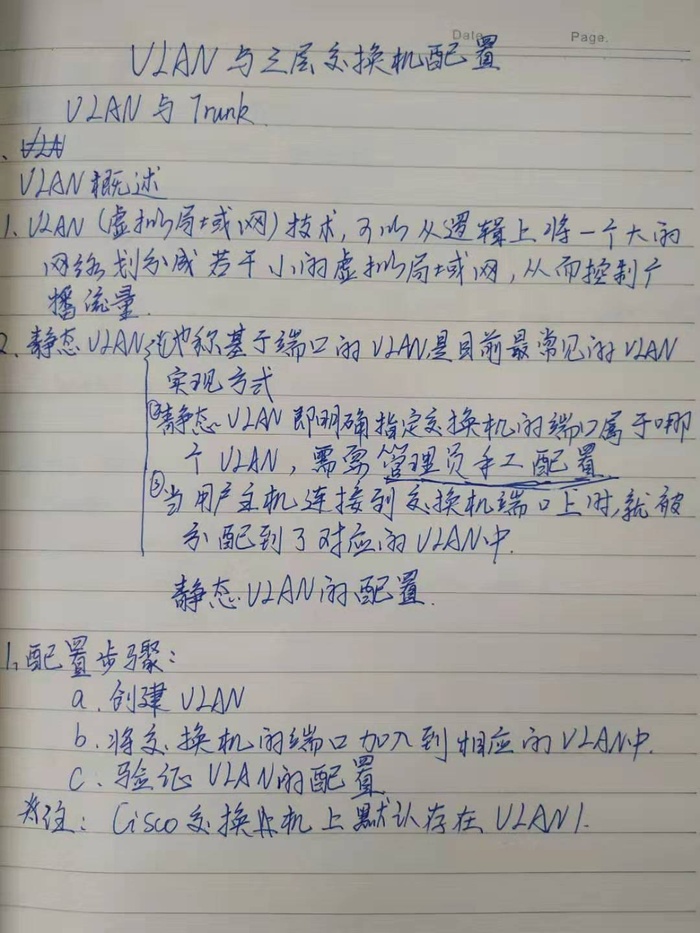 Date.
Page.
VLAN与三层交换机配置
VLAN与Trunk
VLAN概述
1、VLAN(虚拟局域网)技术,可以从逻辑上将一个大的
网络划分成若干小的虚拟局域网,从而控制广
播流量.
2、静态VLAN ①也称基于端口的VLAN,是目前最常见的VLAN
实现方式
②静态VLAN即明确指定交换机的端口属于哪
个VLAN,需要管理员手工配置
③当用户主机连接到交换机端口上时,就被
分配到了对应的VLAN中.
静态VLAN的配置.
1、配置步骤:
a.创建VLAN
b.将交换机的端口加入到相应的VLAN中.
c.验证VLAN的配置
*注:Cisco交换机上默认存在VLAN1.